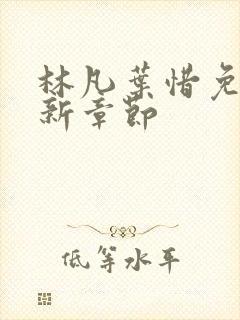 林凡葉惜免
新章節
低等水平